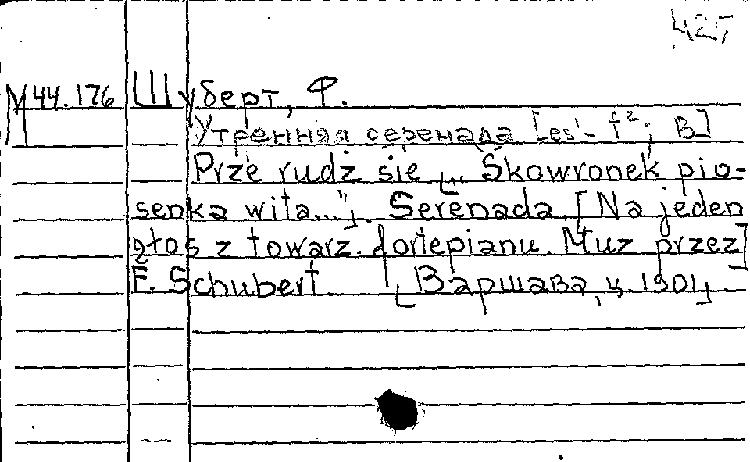 427
M 44.176 Шуберт, Ф.
Утренняя серенада [es¹- f²; B]
Prze rudź się „ Skowronek pio-
senka wita...”. Serenada [Na jeden
głos z towarz. fortepianu. Muz przez]
F. Schubert [Варшава, ц. 1901]